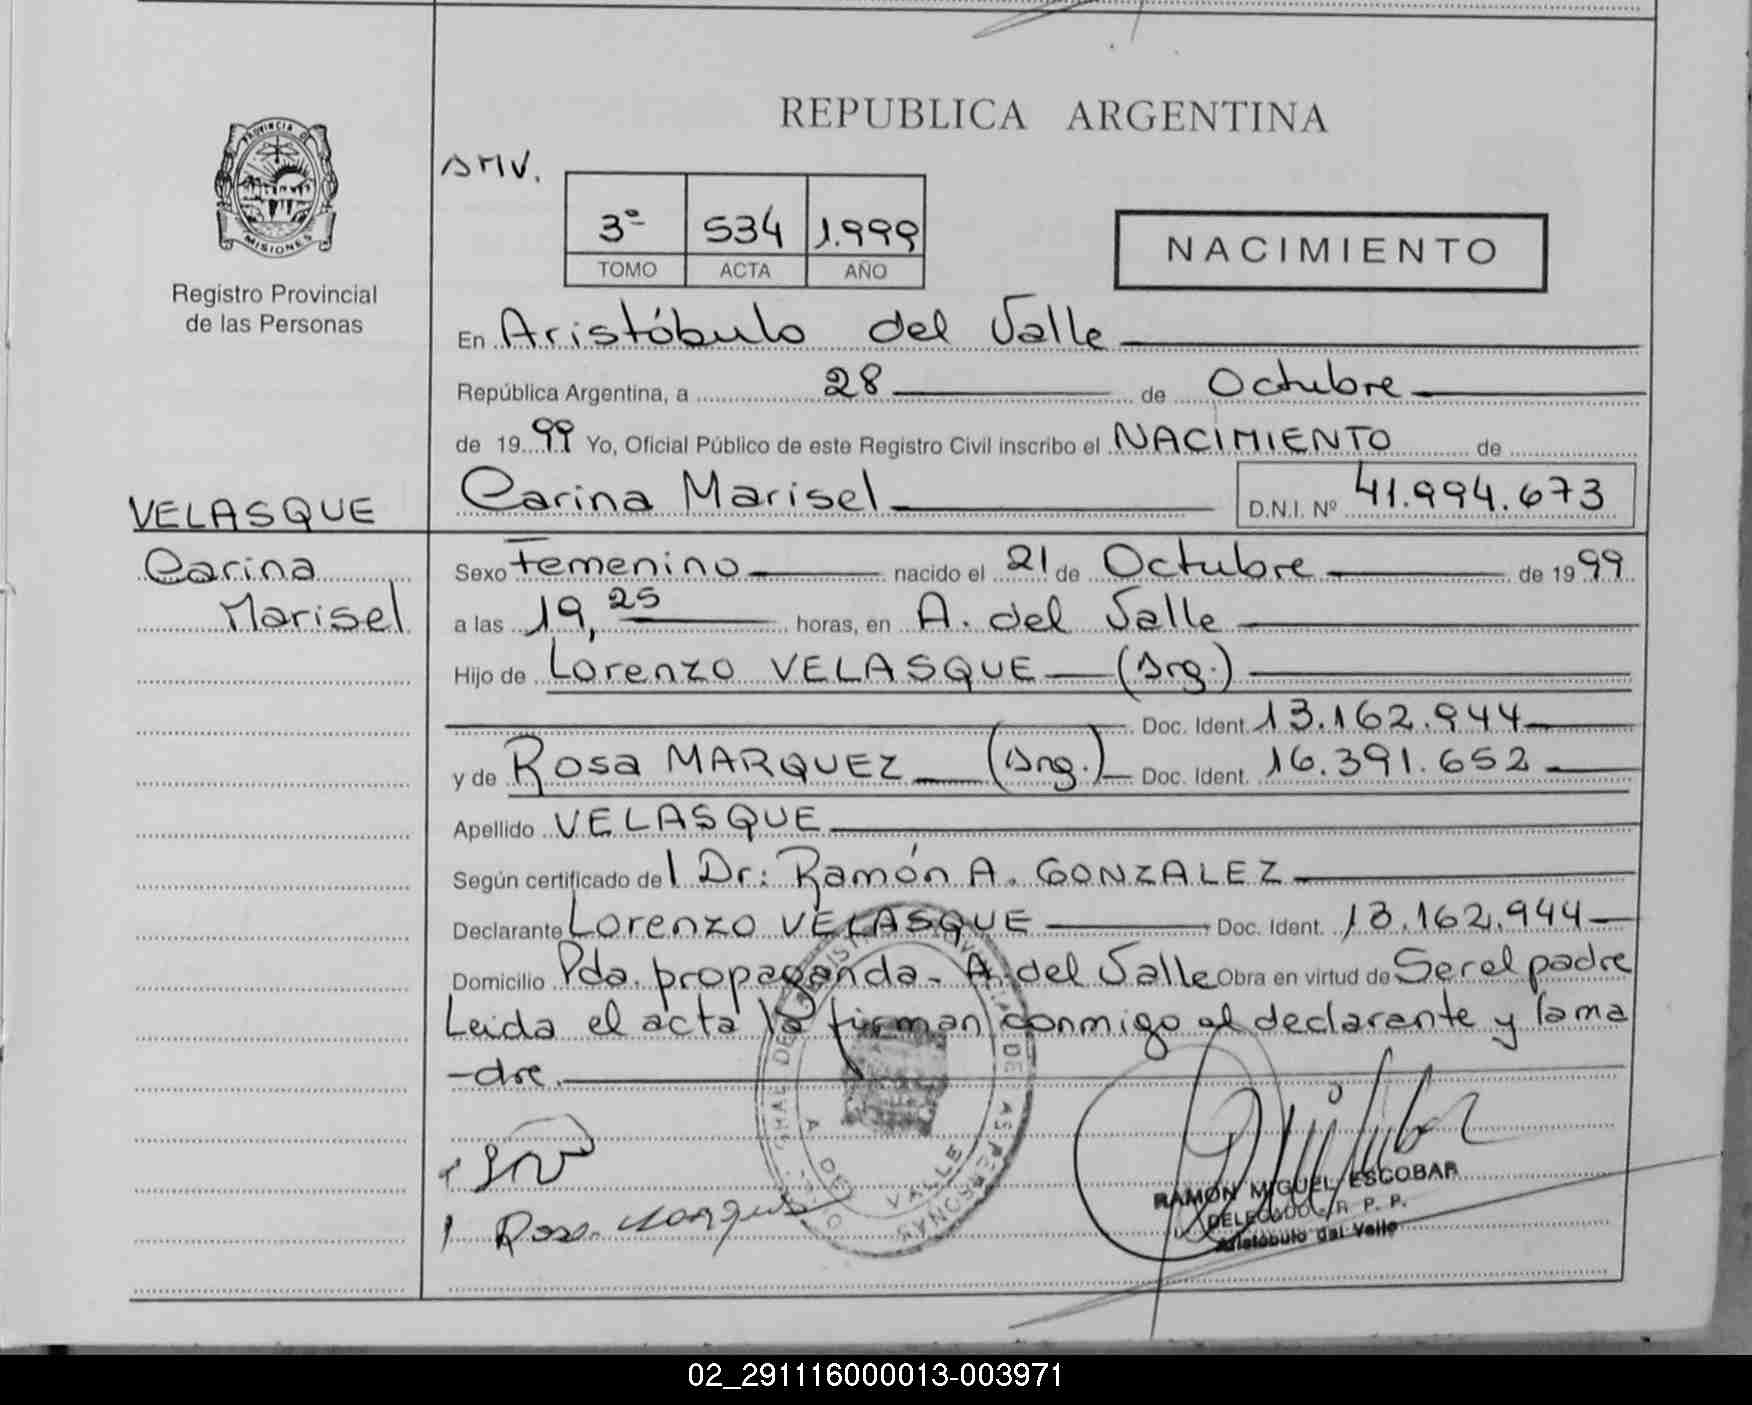 REPUBLICA ARGENTINA
PROVINCIA D
MISIONES
Registro Provincial
de las Personas
SMV.
3º 534 1.999
TOMO ACTA AÑO
NACIMIENTO
En Aristóbulo del Valle
República Argentina, a 28 de Octubre
de 19 99 Yo, Oficial Público de este Registro Civil inscribo el NACIMIENTO de
VELASQUE
Carina Marisel D.N.I. Nº 41.994.673
Carina
Marisel
Sexo Femenino nacido el 21 de Octubre de 19 99
a las 19,25 horas, en A. del Valle
Hijo de Lorenzo VELASQUE (Arg.)
Doc. Ident. 13.162.944
y de Rosa MARQUEZ (Arg.) Doc. Ident. 16.391.652
Apellido VELASQUE
Según certificado del Dr: Ramón A. GONZALEZ
Declarante Lorenzo VELASQUE Doc. Ident. 13.162.944
Domicilio Pda. propaganda - A. del Valle Obra en virtud de Ser el padre
Leida el acta la firman conmigo el declarante y la ma
-dre.
A DEL VALLE
RAMON MIGUEL ESCOBAR
DELEGADO R. P. P.
Aristóbulo del Valle
Rosa
02_291116000013-003971